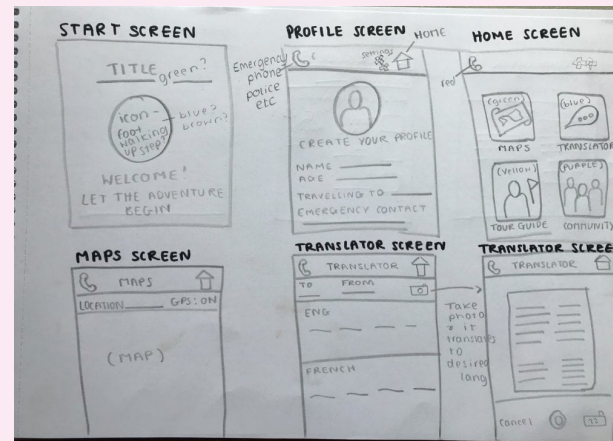 START SCREEN
TITLE
green?
icon -
foot
walking
up steps?
blue?
brown?
WELCOME!
LET THE ADVENTURE
BEGIN
PROFILE SCREEN
HOME
settings
Emergency
phone
police
etc
CREATE YOUR PROFILE
NAME
AGE
TRAVELLING TO
EMERGENCY CONTACT
HOME SCREEN
red
(green)
MAPS
(blue)
TRANSLATOR
(YELLOW)
TOUR GUIDE
(PURPLE)
COMMUNITY
MAPS SCREEN
MAPS
LOCATION GPS: ON
(MAP)
TRANSLATOR SCREEN
TRANSLATOR
TO FROM
ENG
FRENCH
Take
photo
& it
translates
TO
desired
lang
TRANSLATOR SCREE
TRANSLATOR
Cancel